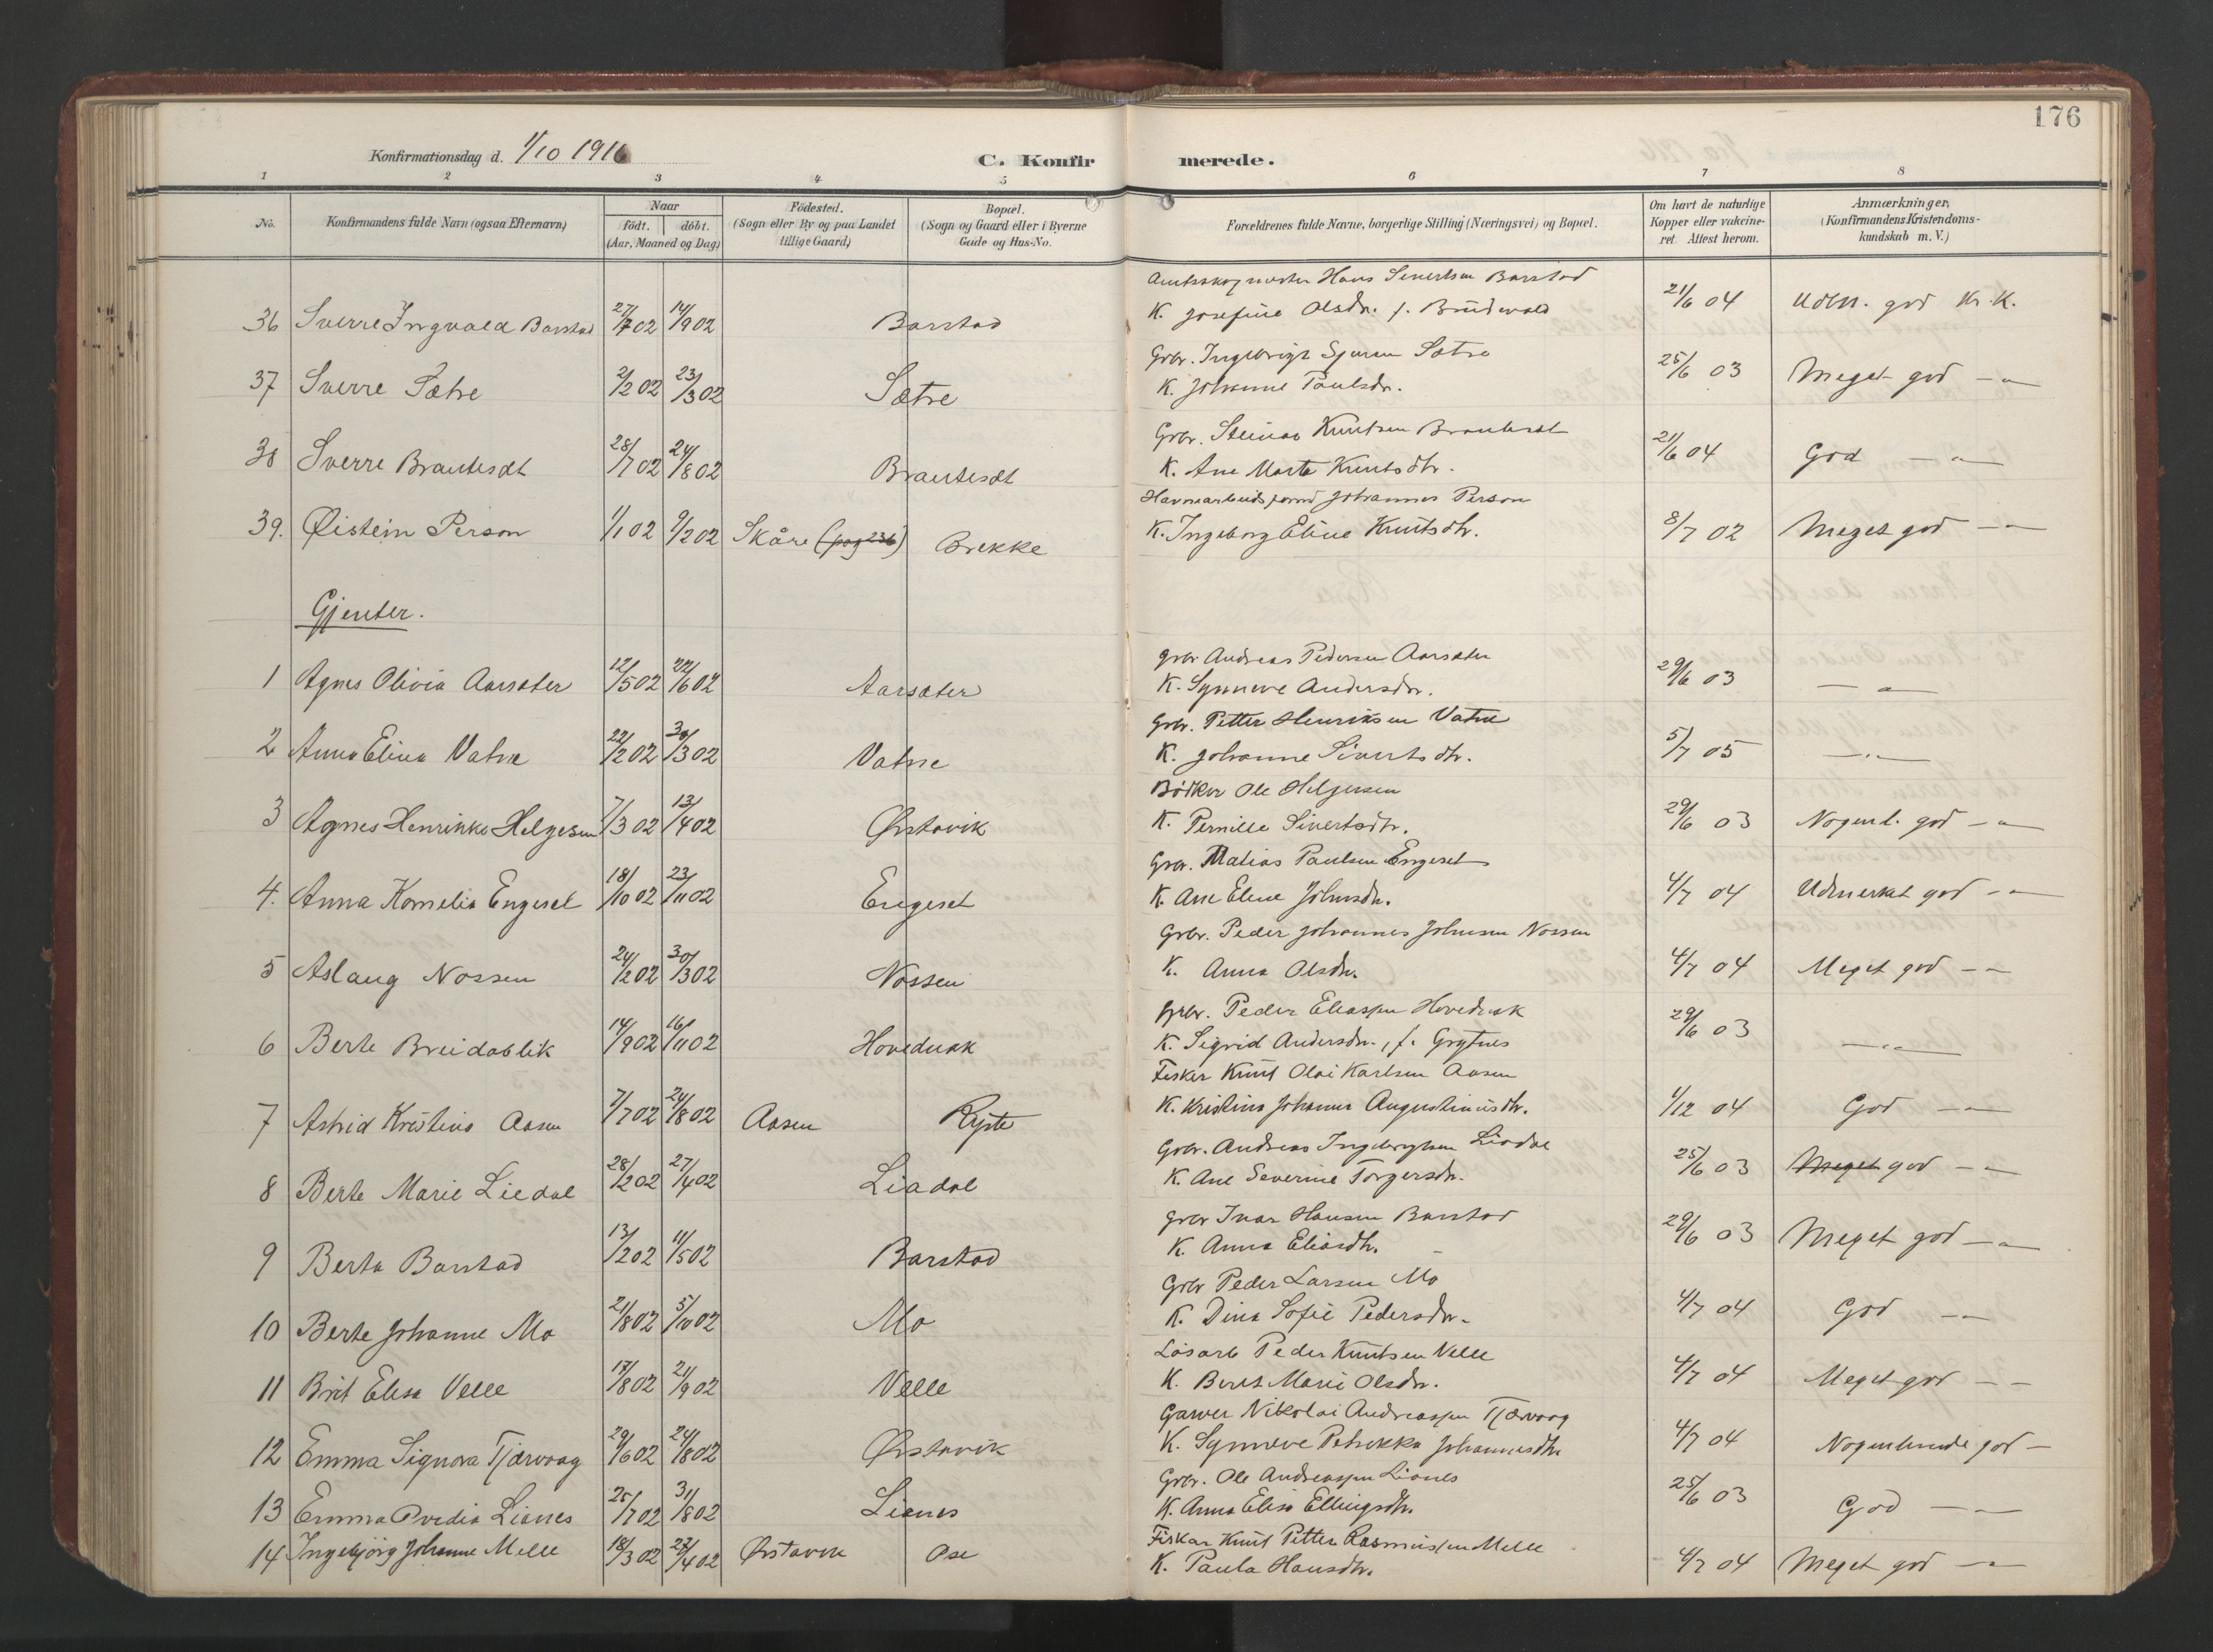 176
Konfirmationsdag d. 1/10 1916
C. Konfirmerede.
1 2 3 4 5 6 7 8
No. Konfirmandens fulde Navn (ogsaa Efternavn) Naar födt. döbt. (Aar, Maaned og Dag) Födested. (Sogn eller By og paa Landet tillige Gaard) Bopæl. (Sogn og Gaard eller i Byerne Gade og Hus-No. Forældrenes fulde Navne, borgerlige Stilling (Næringsvei) og Bopæl. Om havt de naturlige Kopper eller vakcineret. Attest herom. Anmærkninger, (Konfirmandens Kristendomskundskab m. V.)
Hans Sivertsen Barstad
36 Sverre Ingvald Barstad 27/7 02 14/9 02 Barstad K. Josefine Olsdr. f. 21/6 04 Udm. god Kr. K.
Grbr. Ingebrigt Sjursen Sætre
37 Sverre Sætre 2/2 02 23/3 02 Sætre K. Johanne Paulsdr. 25/6 03 Meget god - " -
Grbr. Steinar Knutsen
38 Sverre Brautesdt 28/7 02 24/8 02 Brautesdt K. Ane Marte Knutsdtr. 21/6 04 God - " -
Johannes Person
39. Øistein Person 1/1 02 9/2 02 Skåre (pag 236) Brekke K. Ingeborg Eline Knutsdtr. 8/7 02 Meget god - -
Gjenter.
Grbr. Andreas Pedersen Aarsæter
1 Agnes Olivia Aarsæter 12/5 02 22/6 02 Aarsæter K. Synneve Andersdr. 29/6 03 - " -
Grbr. Petter Henriksen Vatne
2 Anna Elina Vatne 22/2 02 30/3 02 Vatne K. Johanne Sivertsdtr. 5/7 05 - " -
Bödker Ole Helgesen
3 Agnes Henrikke Helgesen 7/3 02 13/4 02 Ørstavik K. Pernille Sivertsdtr. 29/6 03 Nogenl. god - " -
Grbr. Matias Paulsen Engeset
4. Anna Kornelia Engeset 18/10 02 23/11 02 Engeset K. Ane Eline Johnsdr. 4/7 04 Udmerket god - "
Grbr. Peder Johannes Johnsen Nossen
5 Aslaug Nossen 24/2 02 30/3 02 Nossen K. Anna Olsdr. 4/7 04 Meget god - -
Grbr. Peder Eliassen Hovednak
6 Berte Breidablik 14/9 02 16/11 02 Hovednak K. Sigrid Andersdr., f. Grytnes 29/6 03 - " -
Fisker Knut Olai Karlsen Aasen
7 Astrid Kristina Aasen 7/7 02 24/8 02 Aasen Ryste K. Kristina Johanna Augustinusdtr. 1/12 04 God - -
Grbr. Andreas Ingebrigtsen Liadal
8 Berte Marie Liedal 28/2 02 27/4 02 Liadal K. Ane Severine Torgersdr. 25/6 03 Meget god - "
Grbr Ivar Hansen Barstad
9 Berta Barstad 13/2 02 11/5 02 Barstad K. Anna Eliasdtr. 29/6 03 Meget god - "
Grbr Peder Larsen Mo
10 Berte Johanne Mo 21/8 02 5/10 02 Mo K. Dina Sofie Pedersdr. 4/7 04 God - -
Lösarb Peder Knutsen Velle
11 Brit Elisa Velle 17/8 02 21/9 02 Velle K. Beret Marie Olsdr. 4/7 04 Meget god - -
Garver Nikolai Andreassen Tjærvaag
12 Emma Signora Tjærvaag 29/6 02 24/8 02 Ørstavik K. Synneve Petrikka Johannesdtr 4/7 04 Nogenlunde god -
Grbr. Ole Andreassen Lianes
13 Emma Ovedia Lianes 25/7 02 31/8 02 Lianes K. Anna Elisa Ellingsdtr. 25/6 03 God - -
Fisker Knut Petter Rasmussen Melle
14 Ingebjörg Johanne Melle 18/3 02 27/4 02 Ørstavik Ose K. Paula Hansdtr. 4/7 04 Meget god - "